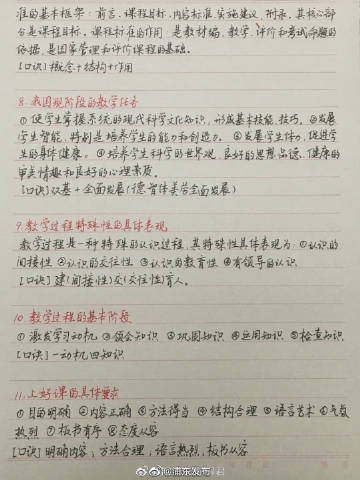 准的基本框架：前言、课程目标、内容标准、实施建议、附录，其核心部
分是课程目标。课程标准的作用：是教材编、教学、评价和考试命题的
依据，是国家管理和评价课程的基础。
[口诀]概念+结构+作用
8.我国现阶段的教学任务
①使学生掌握系统的现代科学文化知识，形成基本技能、技巧。②发展
学生智能，特别是培养学生的能力和创造力。③发展学生体力，促进学
生的身体健康。④培养学生科学的世界观，良好的思想品德，健康的
审美情趣和良好的心理素质。
[口诀]双基+全面发展(德智体美劳全面发展)
9.教学过程特殊性的具体表现
教学过程是一种特殊的认识过程，其特殊性具体表现为：①认识的
间接性 ②认识的交往性 ③认识的教育性 ④有领导的认识
[口诀]建(间接性)交(交往性)育人。
10.教学过程的基本阶段
①激发学习动机 ②领会知识 ③巩固知识 ④运用知识 ⑤检查知识
[口诀]一动机四知识
11.上好课的具体要求
①目的明确 ②内容正确 ③方法得当 ④结构合理 ⑤语言艺术 ⑥气氛
热烈 ⑦板书有序 ⑧态度从容
[口诀]明确内容，方法合理，语言热烈，板书从容
@浦东发布